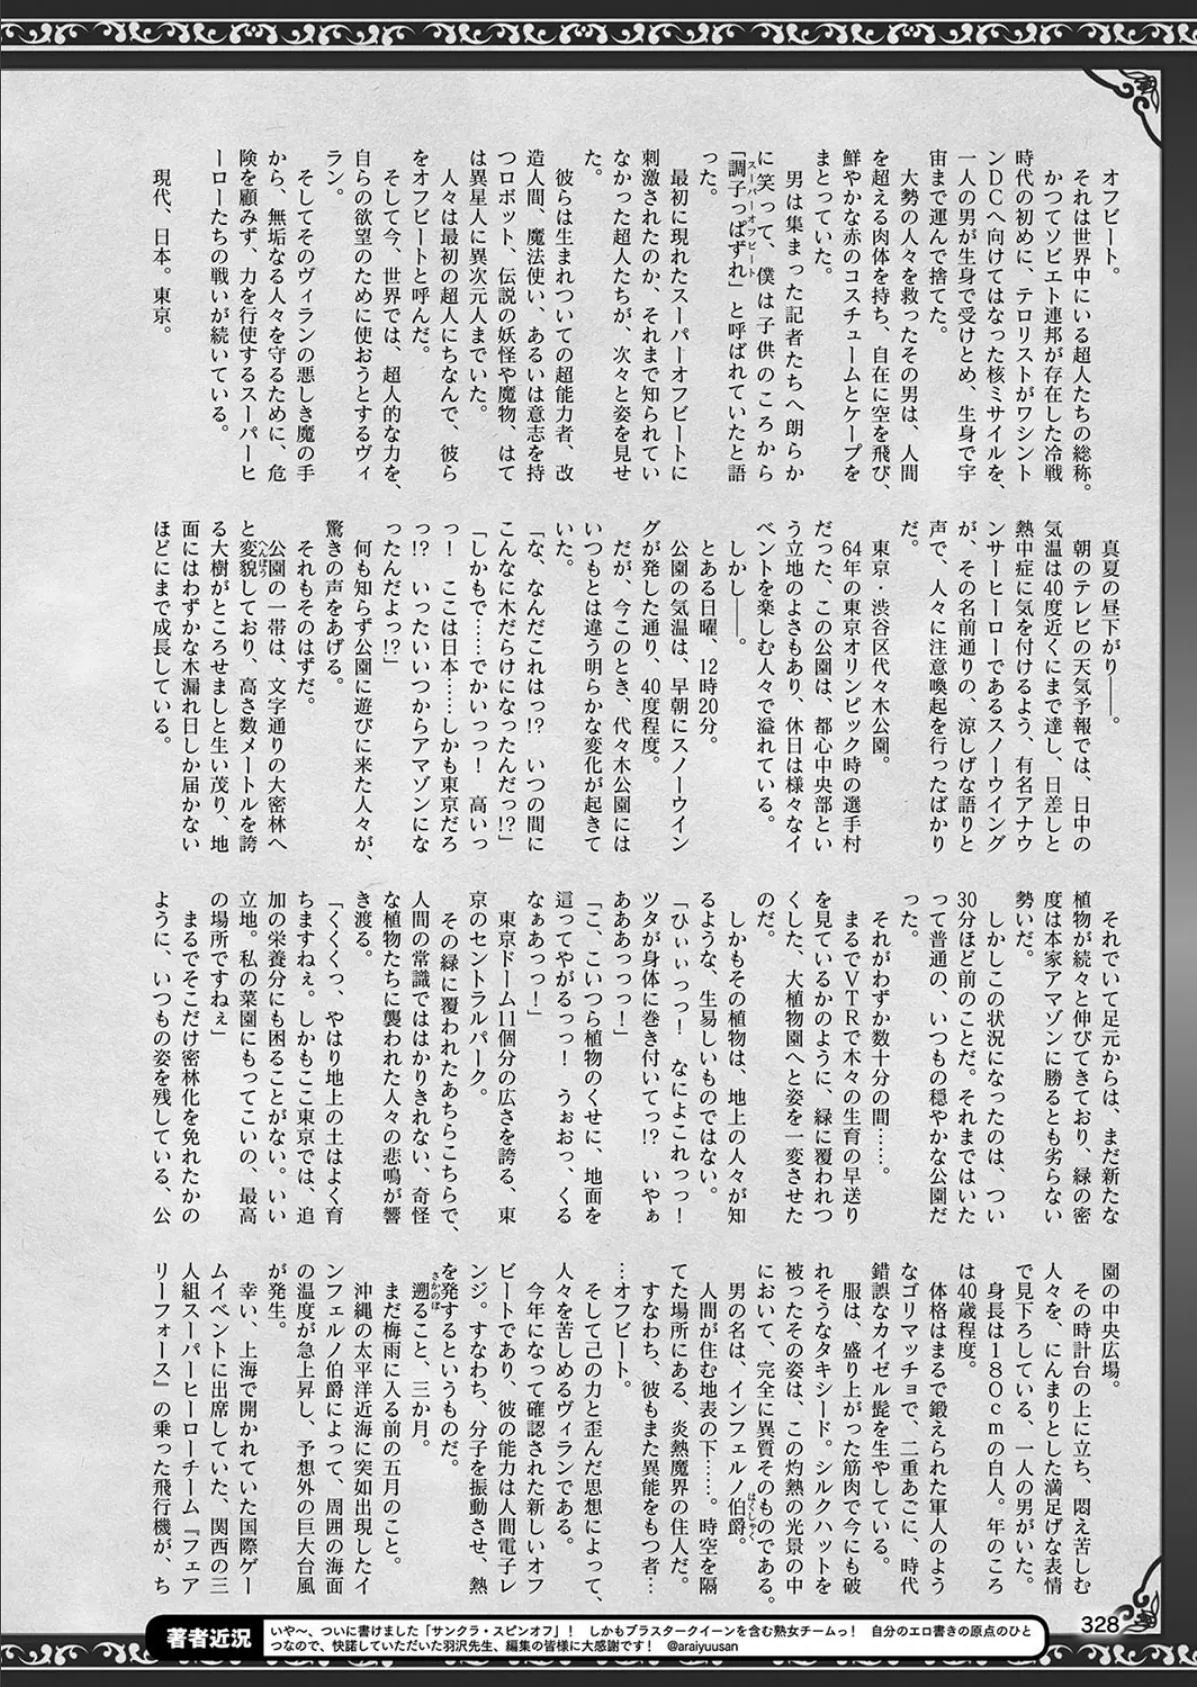 オフビート。
それは世界中にいる超人たちの総称。
かつてソビエト連邦が存在した冷戦
時代の初めに、テロリストがワシント
ンＤＣへ向けてはなった核ミサイルを、
一人の男が生身で受けとめ、生身で宇
宙まで運んで捨てた。
大勢の人々を救ったその男は、人間
を超える肉体を持ち、自在に空を飛び、
鮮やかな赤のコスチュームとケープを
まとっていた。
男は集まった記者たちへ朗らか
に笑って、僕は子供のころから
「調子っぱずれ」と呼ばれていたと語
スーパーオフビート
った。
最初に現れたスーパーオフビートに
刺激されたのか、それまで知られてい
なかった超人たちが、次々と姿を見せ
た。
彼らは生まれついての超能力者、改
造人間、魔法使い、あるいは意志を持
つロボット、伝説の妖怪や魔物、はて
は異星人に異次元人までいた。
人々は最初の超人にちなんで、彼ら
をオフビートと呼んだ。
そして今、世界では、超人的な力を、
自らの欲望のために使おうとするヴィ
ラン。
そしてそのヴィランの悪しき魔の手
から、無垢なる人々を守るために、危
険を顧みず、力を行使するスーパーヒ
ーローたちの戦いが続いている。
現代、日本。東京。
真夏の昼下がり――。
朝のテレビの天気予報では、日中の
気温は40度近くにまで達し、日差しと
熱中症に気を付けるよう、有名アナウ
ンサーヒーローであるスノーウイング
が、その名前通りの、涼しげな語りと
声で、人々に注意喚起を行ったばかり
だ。
東京・渋谷区代々木公園。
64年の東京オリンピック時の選手村
だった、この公園は、都心中央部とい
う立地のよさもあり、休日は様々なイ
ベントを楽しむ人々で溢れている。
しかし――。
とある日曜、12時20分。
公園の気温は、早朝にスノーウイン
グが発した通り、40度程度。
だが、今このとき、代々木公園には
いつもとは違う明らかな変化が起きて
いた。
「な、なんだこれはっ!?　いつの間に
こんなに木だらけになったんだっ!?」
「しかもで……でかいっっ！　高いっ
っ！　ここは日本……しかも東京だろ
っ!?　いったいいつからアマゾンにな
ったんだよっ!?」
何も知らず公園に遊びに来た人々が、
驚きの声をあげる。
それもそのはずだ。
公園の一帯は、文字通りの大密林へ
と変貌しており、高さ数メートルを誇
へんぼう
る大樹がところせましと生い茂り、地
面にはわずかな木漏れ日しか届かない
ほどにまで成長している。
それでいて足元からは、まだ新たな
植物が続々と伸びてきており、緑の密
度は本家アマゾンに勝るとも劣らない
勢いだ。
しかしこの状況になったのは、つい
30分ほど前のことだ。それまではいた
って普通の、いつもの穏やかな公園だ
った。
それがわずか数十分の間……。
まるでＶＴＲで木々の生育の早送り
を見ているかのように、緑に覆われつ
くした、大植物園へと姿を一変させた
のだ。
しかもその植物は、地上の人々が知
るような、生易しいものではない。
「ひぃぃっっ！　なによこれっっ！
ツタが身体に巻き付いてっ!?　いやぁ
あああっっっ！」
「こ、こいつら植物のくせに、地面を
這ってやがるっっ！　うぉおっ、くる
なぁあっっ！」
東京ドーム11個分の広さを誇る、東
京のセントラルパーク。
その緑に覆われたあちらこちらで、
人間の常識でははかりきれない、奇怪
な植物たちに襲われた人々の悲鳴が響
き渡る。
「くくくっ、やはり地上の土はよく育
ちますねぇ。しかもここ東京では、追
加の栄養分にも困ることがない。いい
立地。私の菜園にもってこいの、最高
の場所ですねぇ」
まるでそこだけ密林化を免れたかの
ように、いつもの姿を残している、公
園の中央広場。
その時計台の上に立ち、悶え苦しむ
人々を、にんまりとした満足げな表情
で見下ろしている、一人の男がいた。
身長は１８０ｃｍの白人。年のころ
は40歳程度。
体格はまるで鍛えられた軍人のよう
なゴリマッチョで、二重あごに、時代
錯誤なカイゼル髭を生やしている。
服は、盛り上がった筋肉で今にも破
れそうなタキシード。シルクハットを
被ったその姿は、この灼熱の光景の中
において、完全に異質そのものである。
男の名は、インフェルノ伯爵。
はくしゃく
人間が住む地表の下……。時空を隔
てた場所にある、炎熱魔界の住人だ。
すなわち、彼もまた異能をもつ者…
…オフビート。
そして己の力と歪んだ思想によって、
人々を苦しめるヴィランである。
今年になって確認された新しいオフ
ビートであり、彼の能力は人間電子レ
ンジ。すなわち、分子を振動させ、熱
を発するというものだ。
遡ること、三か月。
さかのぼ
まだ梅雨に入る前の五月のこと。
沖縄の太平洋近海に突如出現したイ
ンフェルノ伯爵によって、周囲の海面
の温度が急上昇し、予想外の巨大台風
が発生。
幸い、上海で開かれていた国際ゲー
ムイベントに出席していた、関西の三
人組スーパーヒーローチーム『フェア
リーフォース』の乗った飛行機が、ち
328
著者近況
いや～、ついに書けました「サンクラ・スピンオフ」！　しかもブラスタークイーンを含む熟女チームっ！　自分のエロ書きの原点のひと
つなので、快諾していただいた羽沢先生、編集の皆様に大感謝です！　@araiyuusan